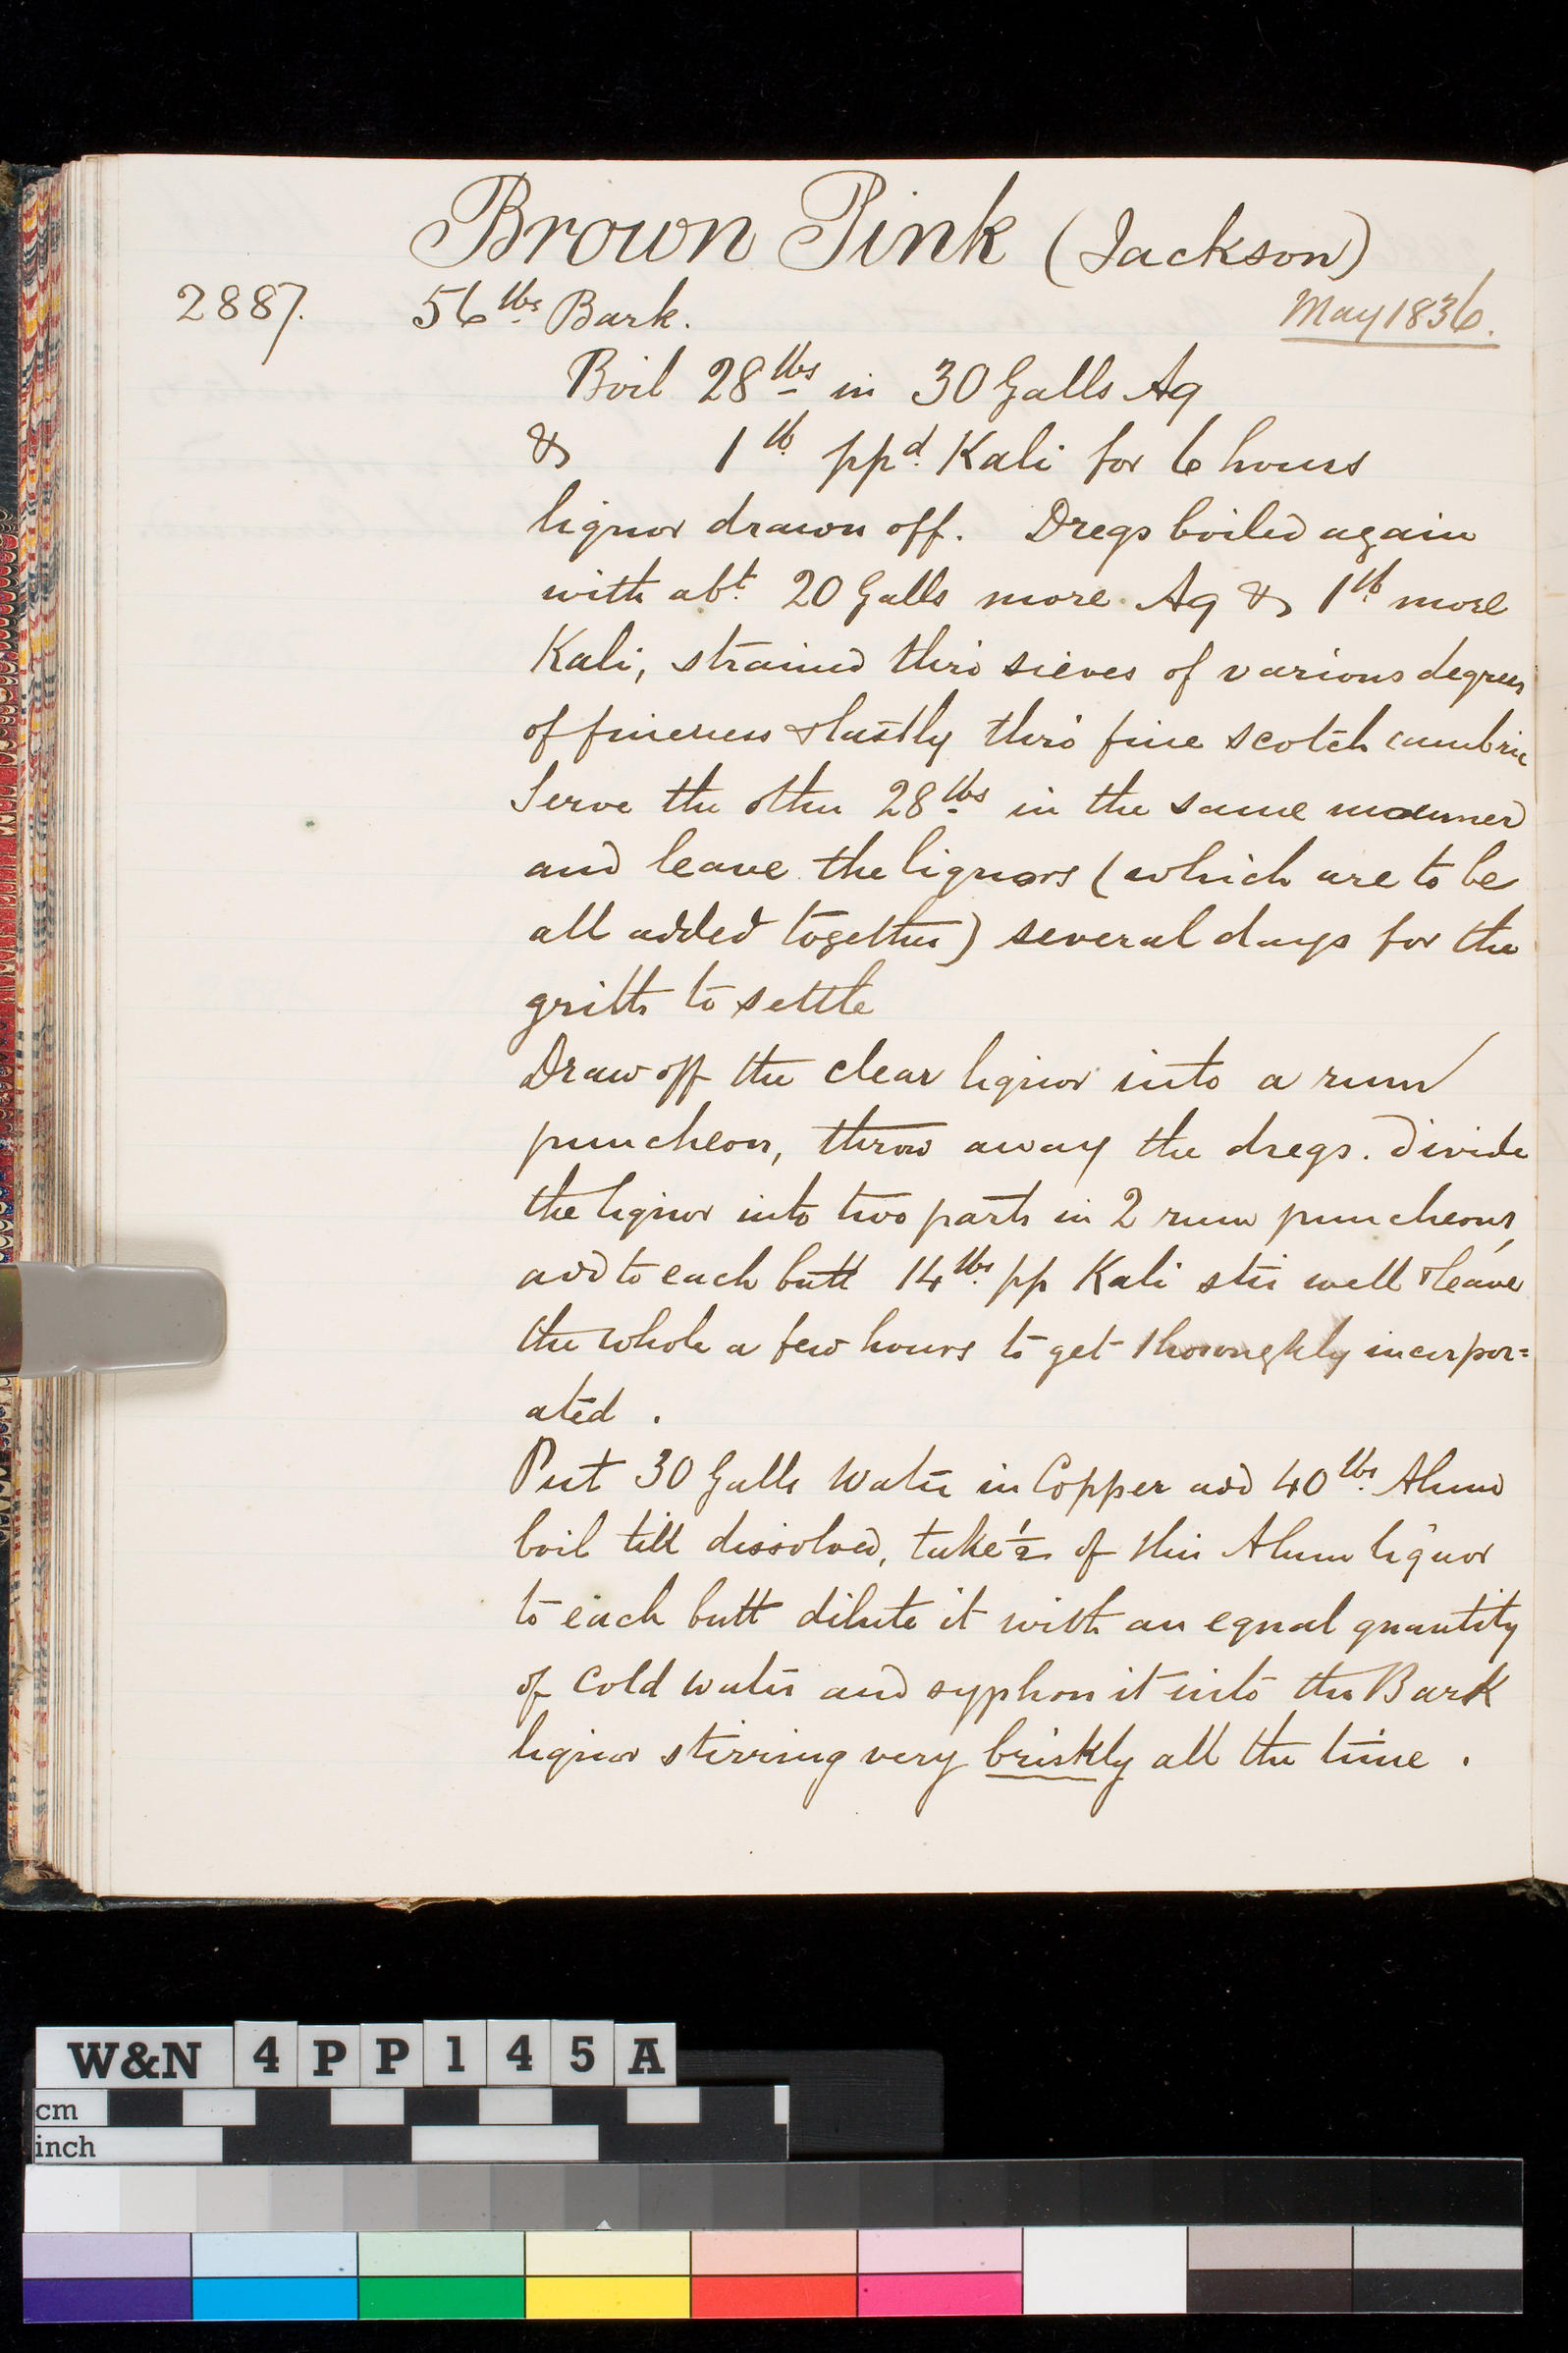 Brown Pink (Jackson)
2887. 56 lbs Bark. May 1836.
Boil 28 lbs in 30 Galls Aq
& 1 lb ppd. Kali for 6 hours
liquor drawn off. Dregs boiled again
with abt. 20 Galls more Aq & 1 lb more
Kali, strained thro sieves of various degrees
of fineness & lastly thro' fine scotch cambric
Serve the other 28 lbs in the same manner
and leave the liquors (which are to be
all added together) several days for the
gritts to settle
Draw off the clear liquor into a rum
puncheon, throw away the dregs. divide
the liquor into two parts in 2 rum puncheons,
add to each butt 14 lbs. pp Kali stir well & leave
the whole a few hours to get thoroughly incorpor=
ated .
Put 30 Galls Water in Copper add 40 lbs. Alum
boil till dissolved, take 1/2 of this Alum liquor
to each butt dilute it with an equal quantity
of cold water and syphon it into the Bark
liquor stirring very briskly all the time .
W&N 4PP145A
cm
inch